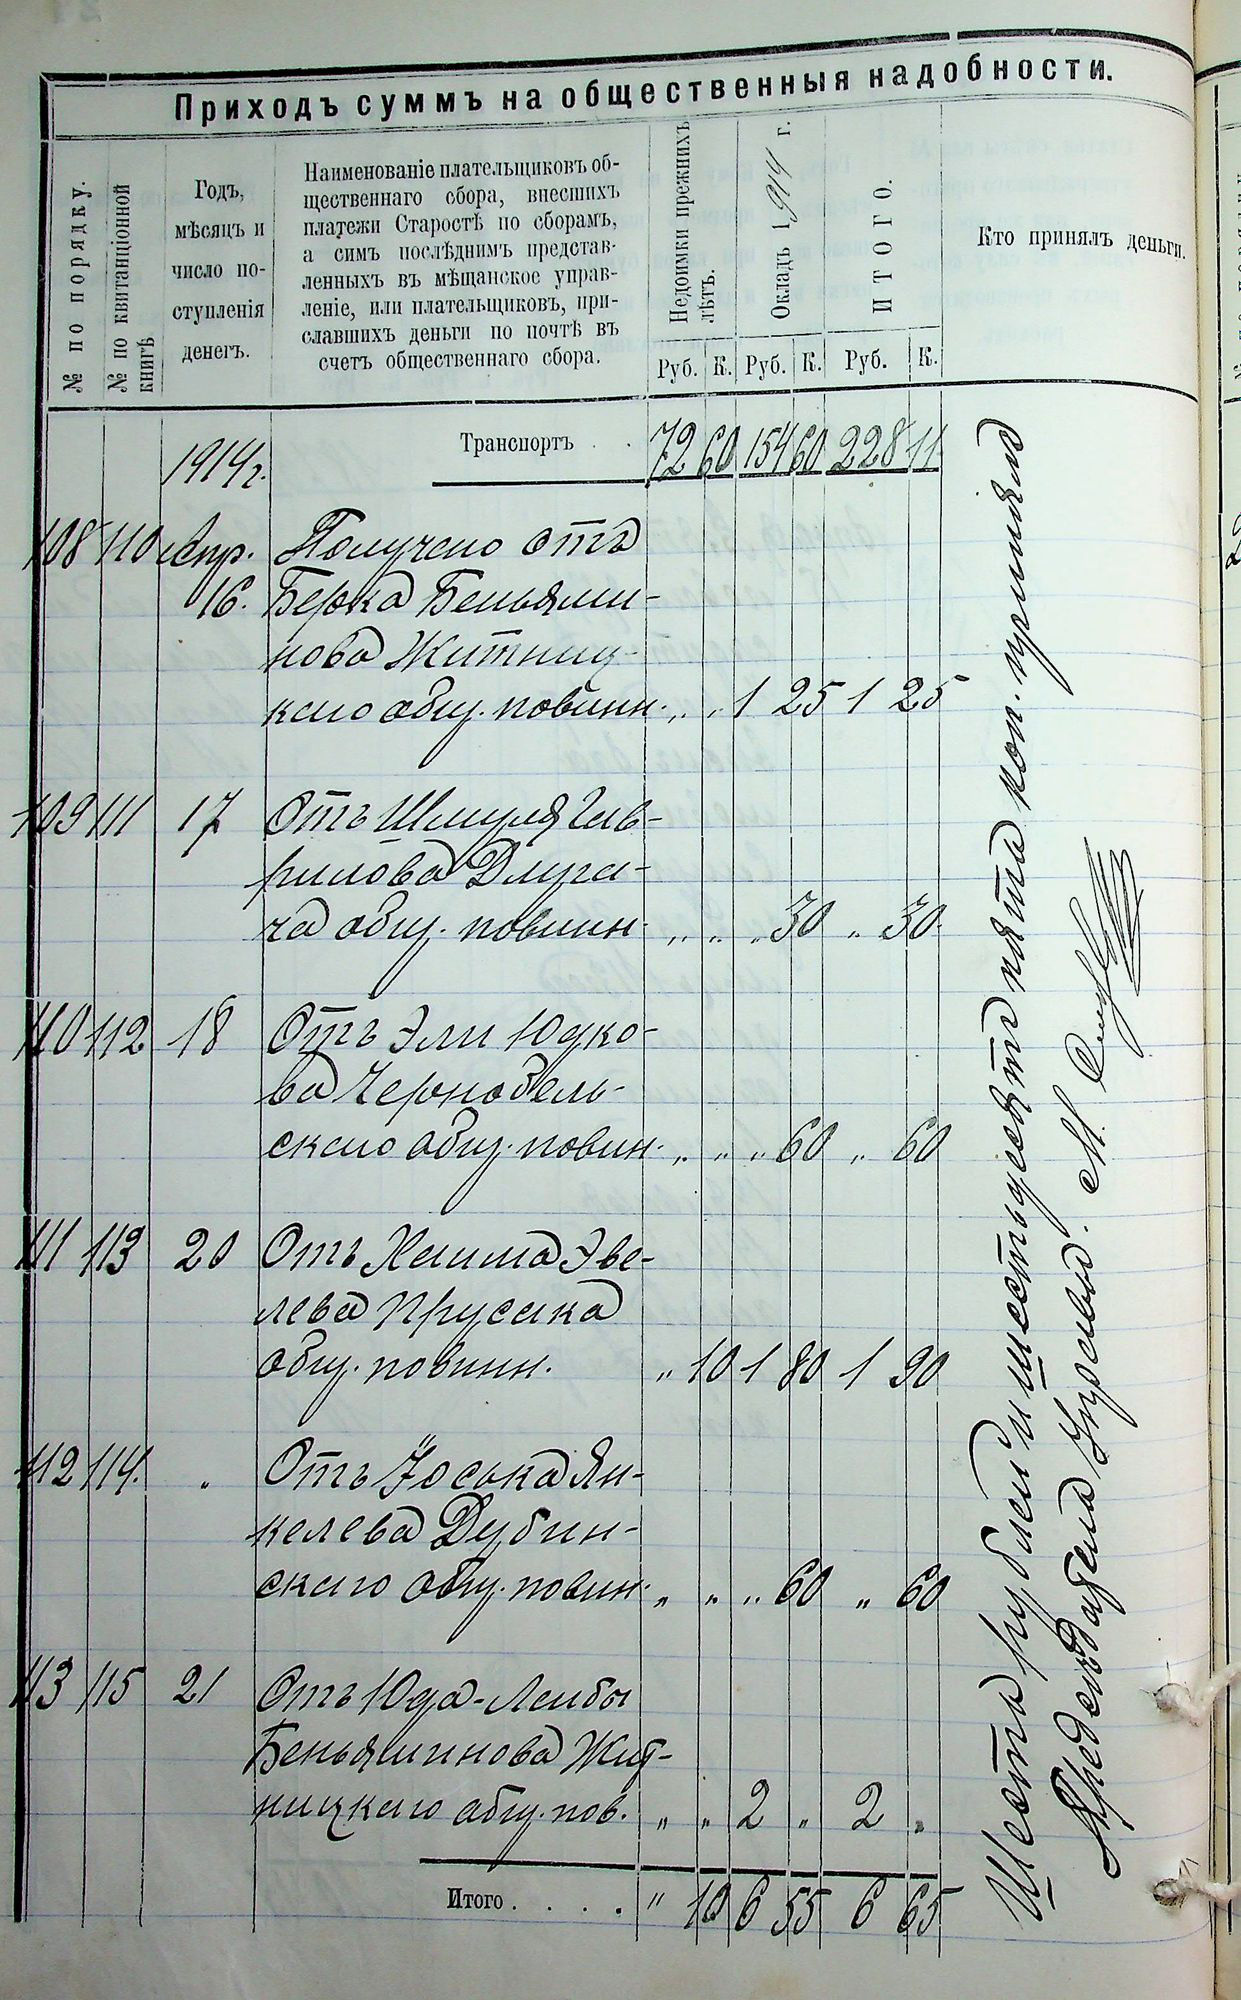 Приходъ суммъ на общественныя надобности.
№ по порядку.
№ по квитанціонной
книгѣ
Годъ,
мѣсяцъ и
число по-
ступленія
денегъ.
Наименованіе плательщиковъ об-
щественнаго сбора, внесшихъ
платежи Старостѣ по сборамъ,
а симъ послѣднимъ представ-
ленныхъ въ мѣщанское управ-
леніе, или плательщиковъ, при-
славшихъ деньги по почтѣ въ
счетъ общественнаго сбора.
Недоимки прежнихъ
лѣтъ.
Окладъ 1914 г.
ИТОГО.
Кто принялъ деньги.
Руб. К. Руб. К. Руб. К.
1914 г. Транспортъ . . 72 60 154 60 228 11
108 110 Апр. Получено отъ
16. Берка Беньями-
нова Житниц-
каго общ. повинн. „ „ 1 25 1 25
109 111 17 Отъ Шмуля Гав-
рилова Длуга-
ча общ. повинн. „ „ „ 30 „ 30
110 112 18 Отъ Эли Юдко-
ва Чернобель-
скаго общ. повин. „ „ „ 60 „ 60
111 113 20 Отъ Хаима Эве-
лева Прусака
общ. повинн. „ 10 1 80 1 90
112 114 „ Отъ Іоська Ян-
келева Дубин-
скаго общ. повин. „ „ „ 60 „ 60
113 115 21 Отъ Юда-Лейбы
Беньяминова Жит-
ницкаго общ. пов. „ „ 2 „ 2 „
Итого . . . . „ 10 6 55 6 65
Шесть рублей и шестьдесятъ пять коп. принялъ
Председатель Управы. М.